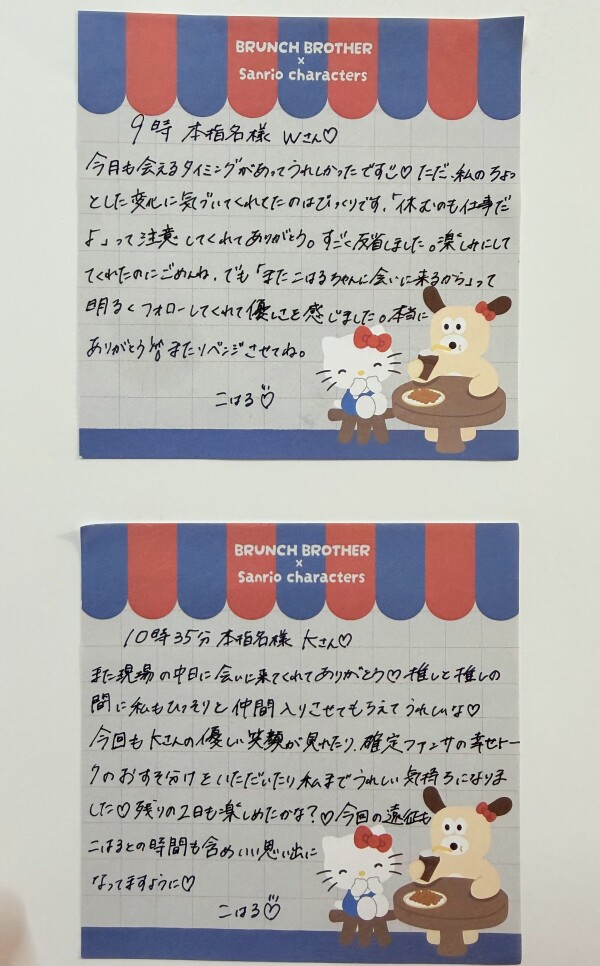 BRUNCH BROTHER
×
Sanrio characters
9時 本指名様 Wさん♡
今月も会えるタイミングがあってうれしかったです♡ ただ、私のちょっ
とした変化に気づいてくれてたのはびっくりです。「休むのも仕事だ
よ」って注意してくれてありがとう。すごく反省しました。楽しみにして
てくれたのにごめんね。でも「またこはるちゃんに会いに来るから」って
明るくフォローしてくれて優しさを感じました。本当に
ありがとう またリベンジさせてね。
こはる♡
BRUNCH BROTHER
×
Sanrio characters
10時35分 本指名様 Kさん♡
また現場の中日に会いに来てくれてありがとう♡ 推しと推しの
間に私もひっそりと仲間入りさせてもらえてうれしいな♡
今回もKさんの優しい笑顔が見れたり、確定ファンサの幸せトー
クのおすそ分けをいただいたり私までうれしい気持ちになりま
した♡ 残りの2日も楽しめたかな?♡ 今回の遠征も
こはるとの時間も含めいい思い出に
なってますように♡
こはる♡